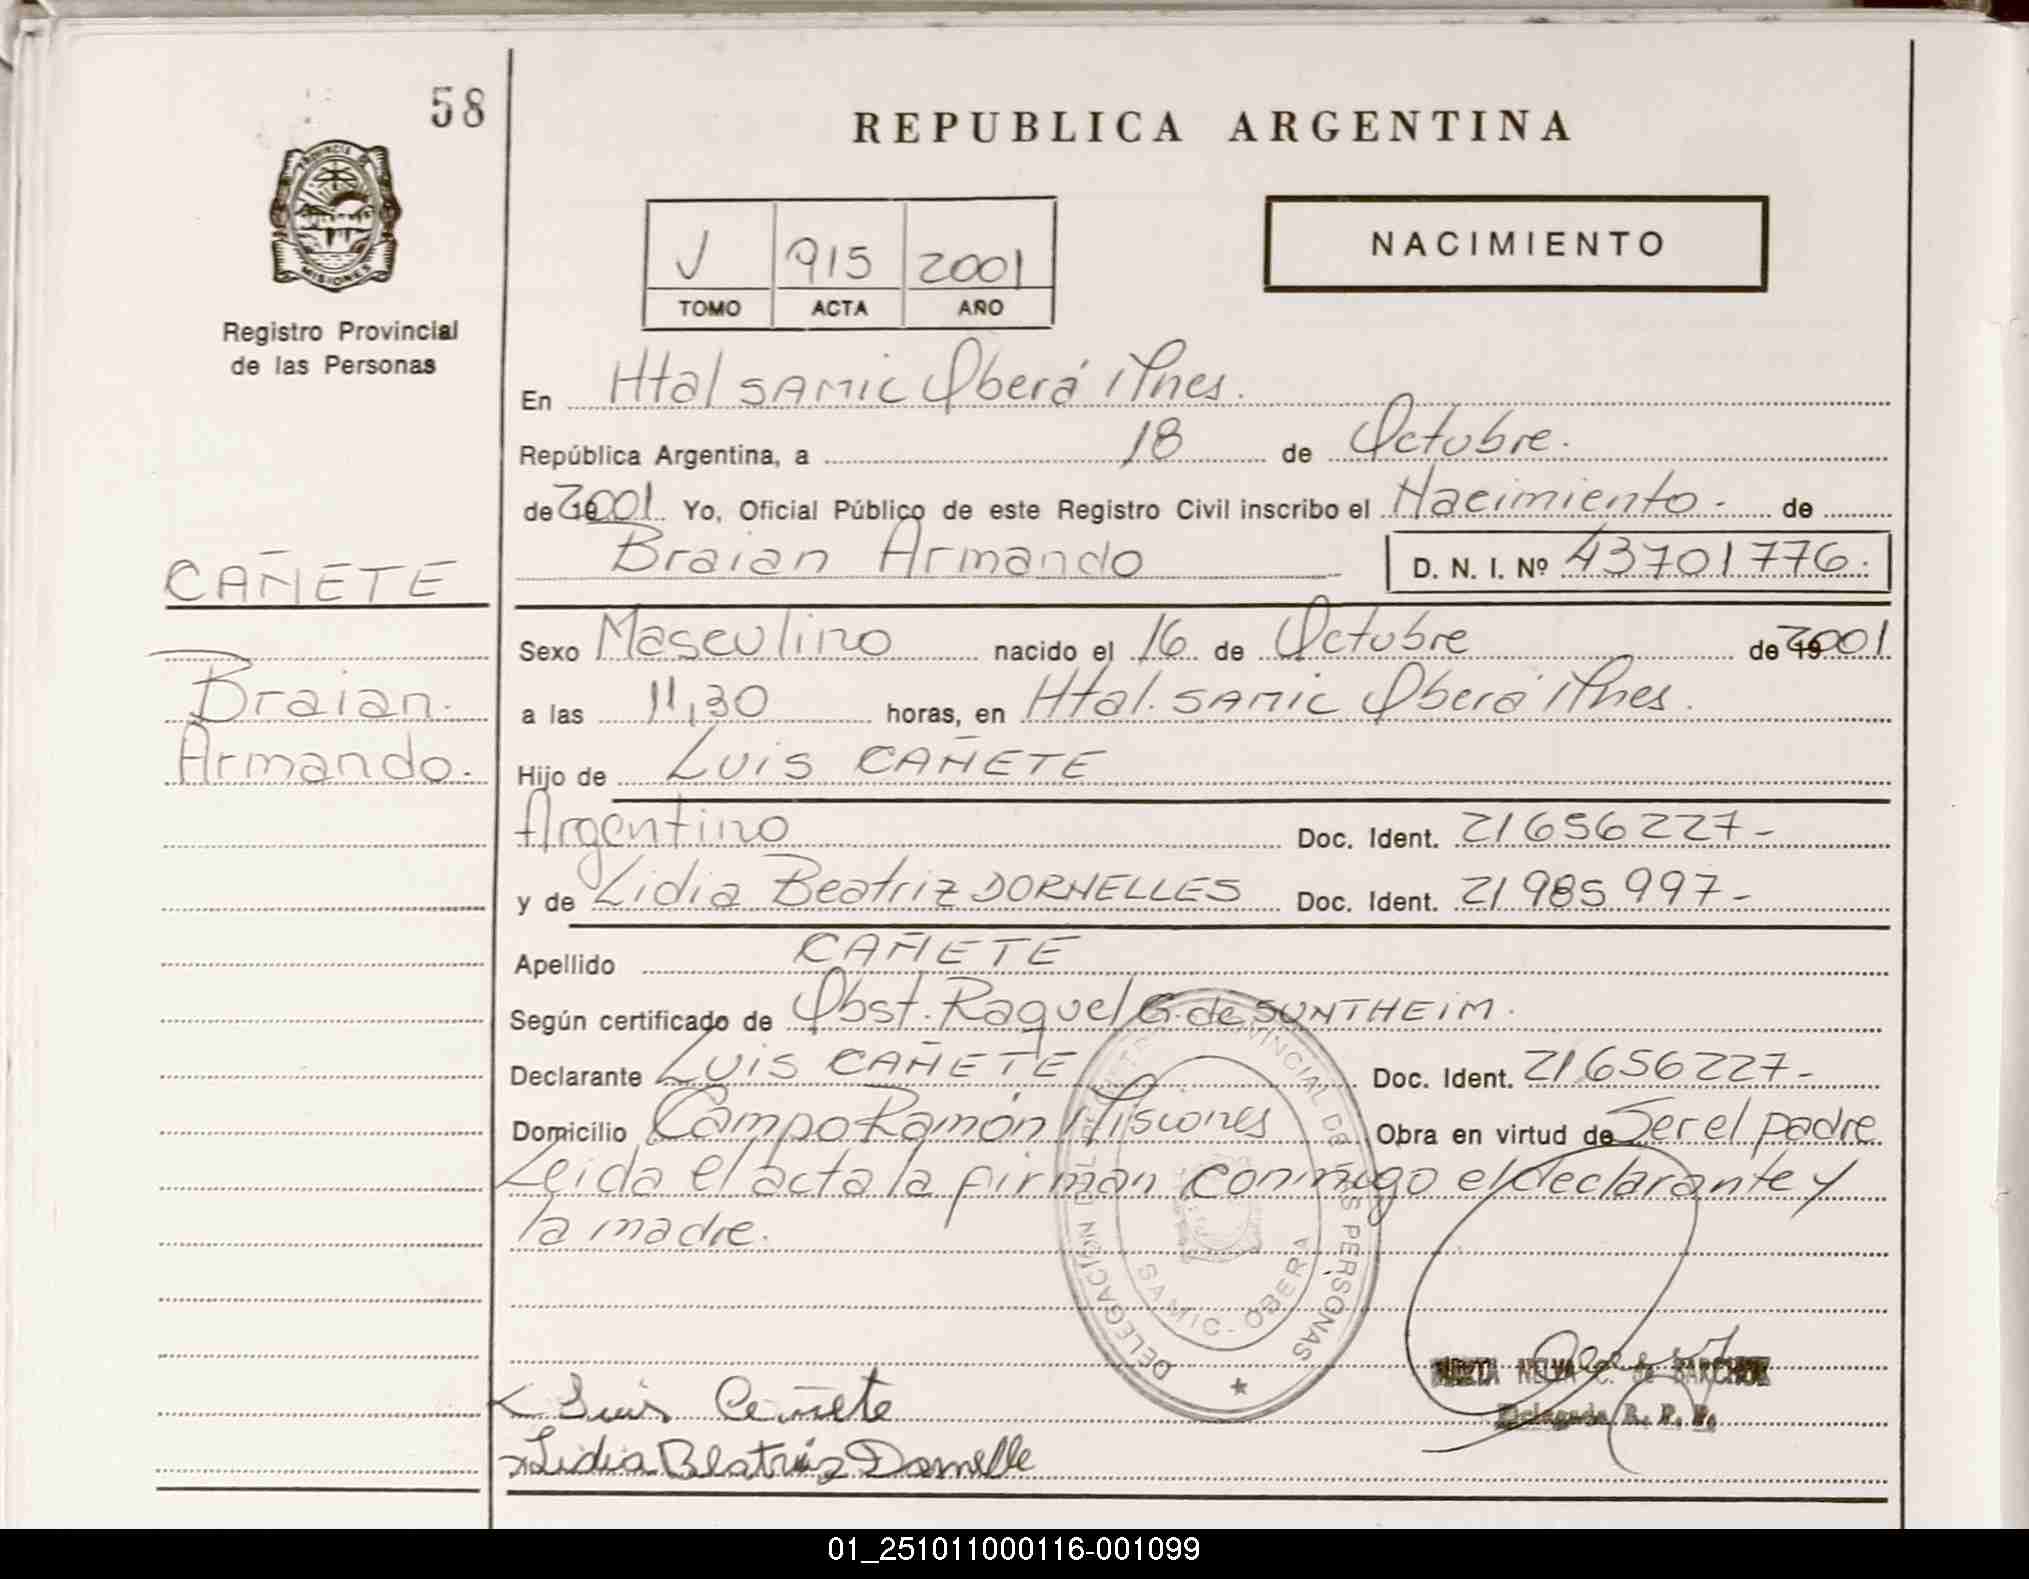 58
REPUBLICA ARGENTINA
PROVINCIA DE
MISIONES
Registro Provincial
de las Personas
V 915 2001
TOMO ACTA AÑO
NACIMIENTO
En Htal SAMIC Oberá Mnes.
República Argentina, a 18 de Octubre.
de 2001 Yo, Oficial Público de este Registro Civil inscribo el Nacimiento - de
Braian Armando D. N. I. Nº 43701776.
CAÑETE
Braian
Armando.
Sexo Masculino nacido el 16 de Octubre de 2001
a las 11,30 horas, en Htal. SAMIC Oberá Mnes.
Hijo de Luis CAÑETE
Argentino Doc. Ident. 21656227-
y de Lidia Beatriz DORNELLES Doc. Ident. 21985997-
Apellido CAÑETE
Según certificado de Obst. Raquel G. de SUNTHEIM.
Declarante Luis CAÑETE Doc. Ident. 21656227-
Domicilio Campo Ramón Misiones Obra en virtud de Ser el padre
Leida el acta la firman conmigo el declarante y
la madre.
DELEGACIÓN DEL REGISTRO PROVINCIAL DE LAS PERSONAS
SAMIC - OBERA
Luis Cañete
Lidia Beatriz Dornelle
NELVA C. de
Delegada R. P. P.
01_251011000116-001099